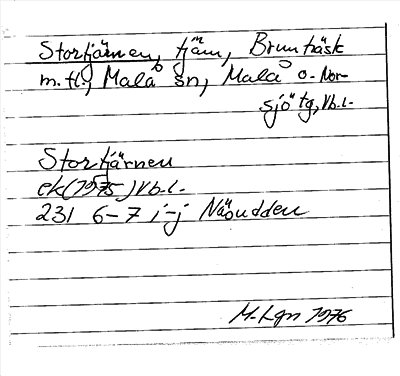 Stortjärnen, tjärn, Brunträsk
m.fl., Malå sn, Malå o. Nor-
sjö tg, Vb.l.
Stortjärnen
ek (1975) Vb.l.
231 6-7 i-j Näsudden
M. Lgn 1976